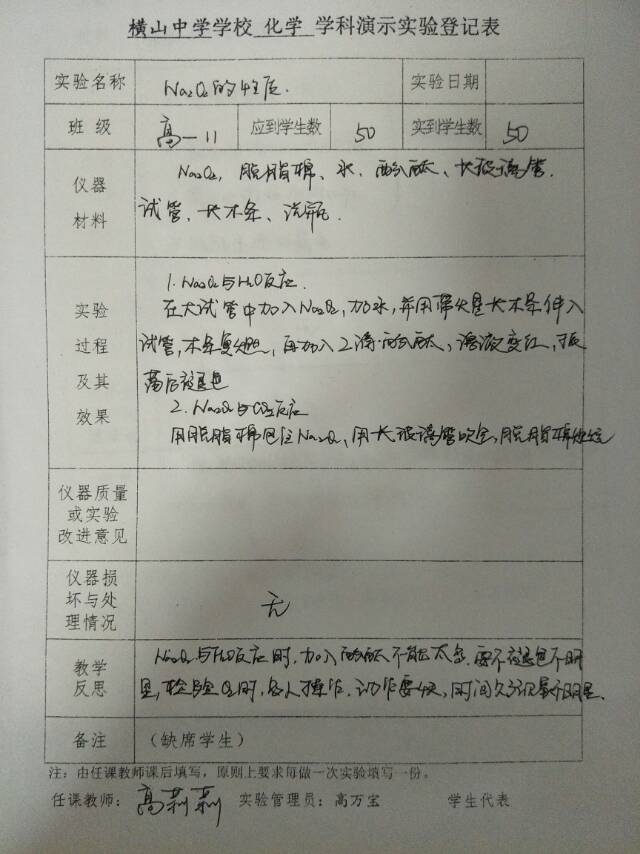 横山中学学校 化学 学科演示实验登记表
实验名称 Na₂O₂的性质. 实验日期
班 级 高一11 应到学生数 50 实到学生数 50
仪器 材料
Na₂O₂, 脱脂棉、水、酚酞、长玻璃管.
试管、长木条、洗瓶.
实验 过程 及其 效果
1. Na₂O₂与H₂O反应.
在大试管中加入Na₂O₂, 加水, 并用带火星长木条伸入
试管, 木条复燃, 再加入2滴酚酞, 溶液变红, 振
荡后褪色
2. Na₂O₂与CO₂反应
用脱脂棉包住Na₂O₂, 用长玻璃管吹气, 脱脂棉燃烧
仪器质量
或实验
改进意见
仪器损
坏与处
理情况
无
教学 反思
Na₂O₂与H₂O反应时, 加入酚酞不能太多, 要不褪色不明
显, 检验O₂时, 动作要快, 时间久了现象不明显.
备注 (缺席学生)
注: 由任课教师课后填写, 原则上要求每做一次实验填写一份。
任课教师: 高莉莉 实验管理员: 高万宝 学生代表